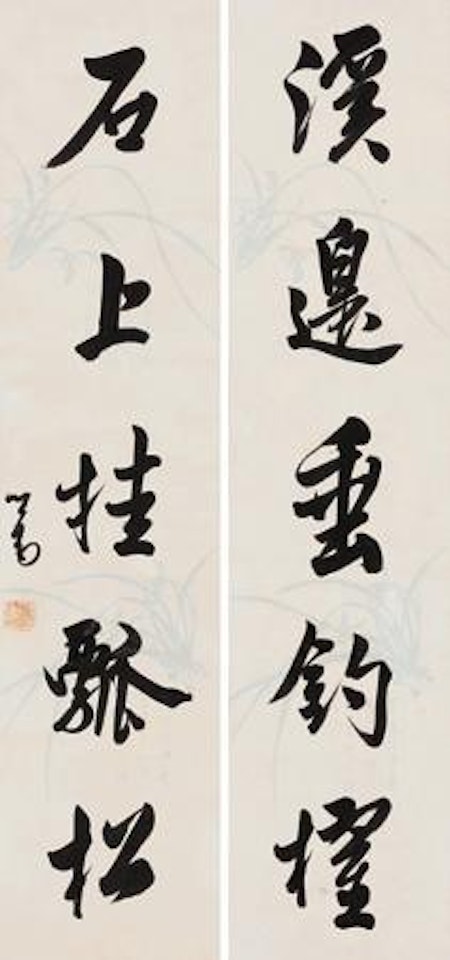 溪邊垂釣櫂
石上挂瓢松